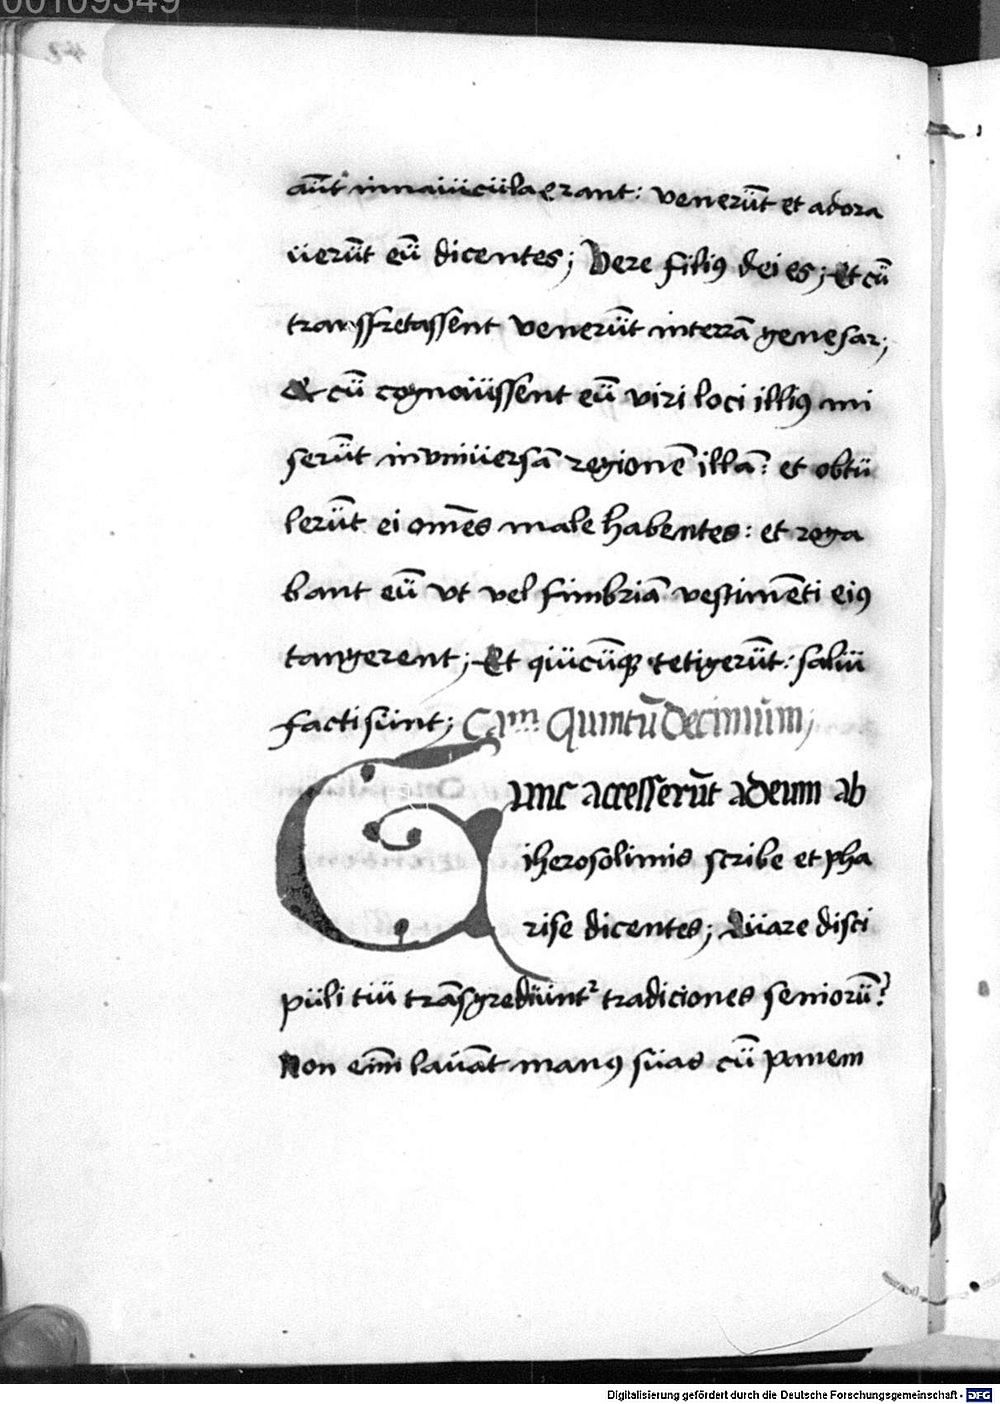 00109349
aūt in naiuicula erant: venerūt et adora
uerūt eū dicentes; Vere filiꝰ dei es; Et cū
transfretassent venerūt in terrā genesar;
Et cū cognouissent eū viri loci illiꝰ mi
serūt in vniuersā regionē illā: et obtu
lerūt ei om̄es male habentes: et roga
bant eū vt vel fimbriā vestimēti eiꝰ
tangerent; Et quicūqꝫ tetigerūt: salui
facti sunt; Capm Quintū decimum;
Tunc accesserūt ad eum ab
iherosolimis scribe et pha
rise dicentes; Quare disci
puli tui trāsgrediunt᷑ tradiciones seniorū?
Non eīm lauāt manꝰ suas cū panem
Digitalisierung gefördert durch die Deutsche Forschungsgemeinschaft - DFG